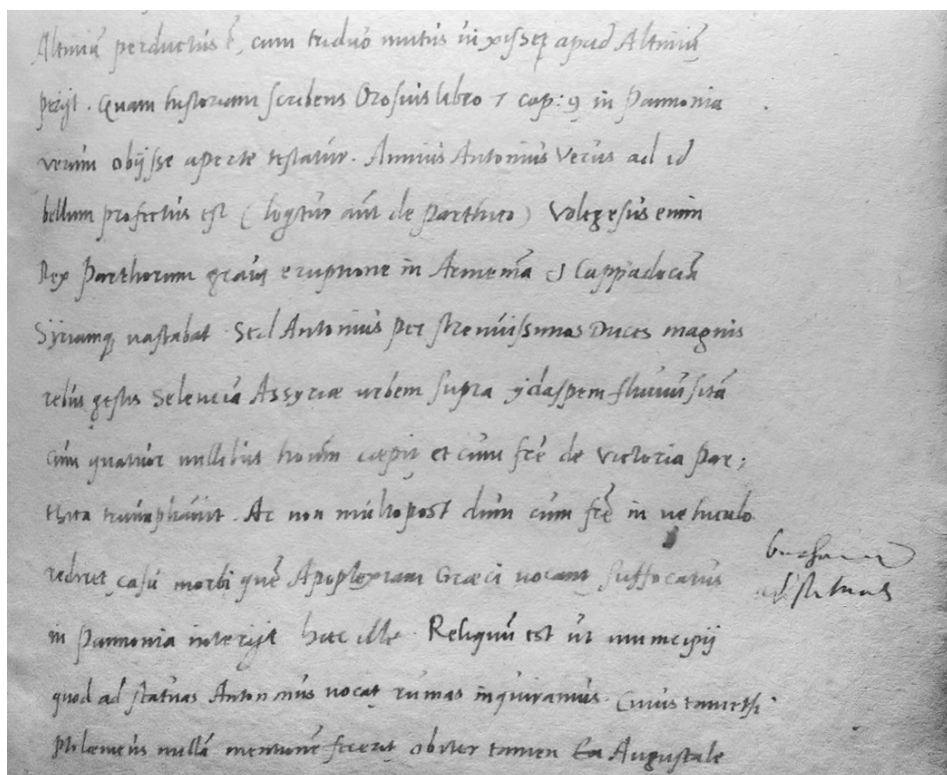 Altiniũ perductus ẽ, cum triduo mutus uixisset apud Altiniũ
perijt. Quam historiam scribens Orosius libro 7 cap: 9 in Pannonia
verum obijsse aperte testatur. Annius Antonius Verus ad id
bellum profectus est (loqitur aut̃ de Parthico) Vologesus enim
Rex Parthorum graui eruptione in Armeniã & Cappadociã
Syriamq; uastabat. Sed Antonius per strenuissimos Duces magnis
rebus gestis Seleuciã Assyriæ urbem supra ydaspem fluuiũ sitã
cum quatuor millibus hom̃ cæpit et cum fr̃e de victoria Par:
thica triumphauit. Ac non multo post dum cum fr̃e in uehiculo
rediret casu morbi quẽ Apoplexiam Græci uocant suffocatus
in Pannonia interijt hæc ille. Reliquũ est ut municipij
quod ad statuas Antoninus uocat ruinas inquiramus. Cuius tametsi
Ptolemeus nullã mentionẽ fecerit obiter tamen Augustale
ad statuas